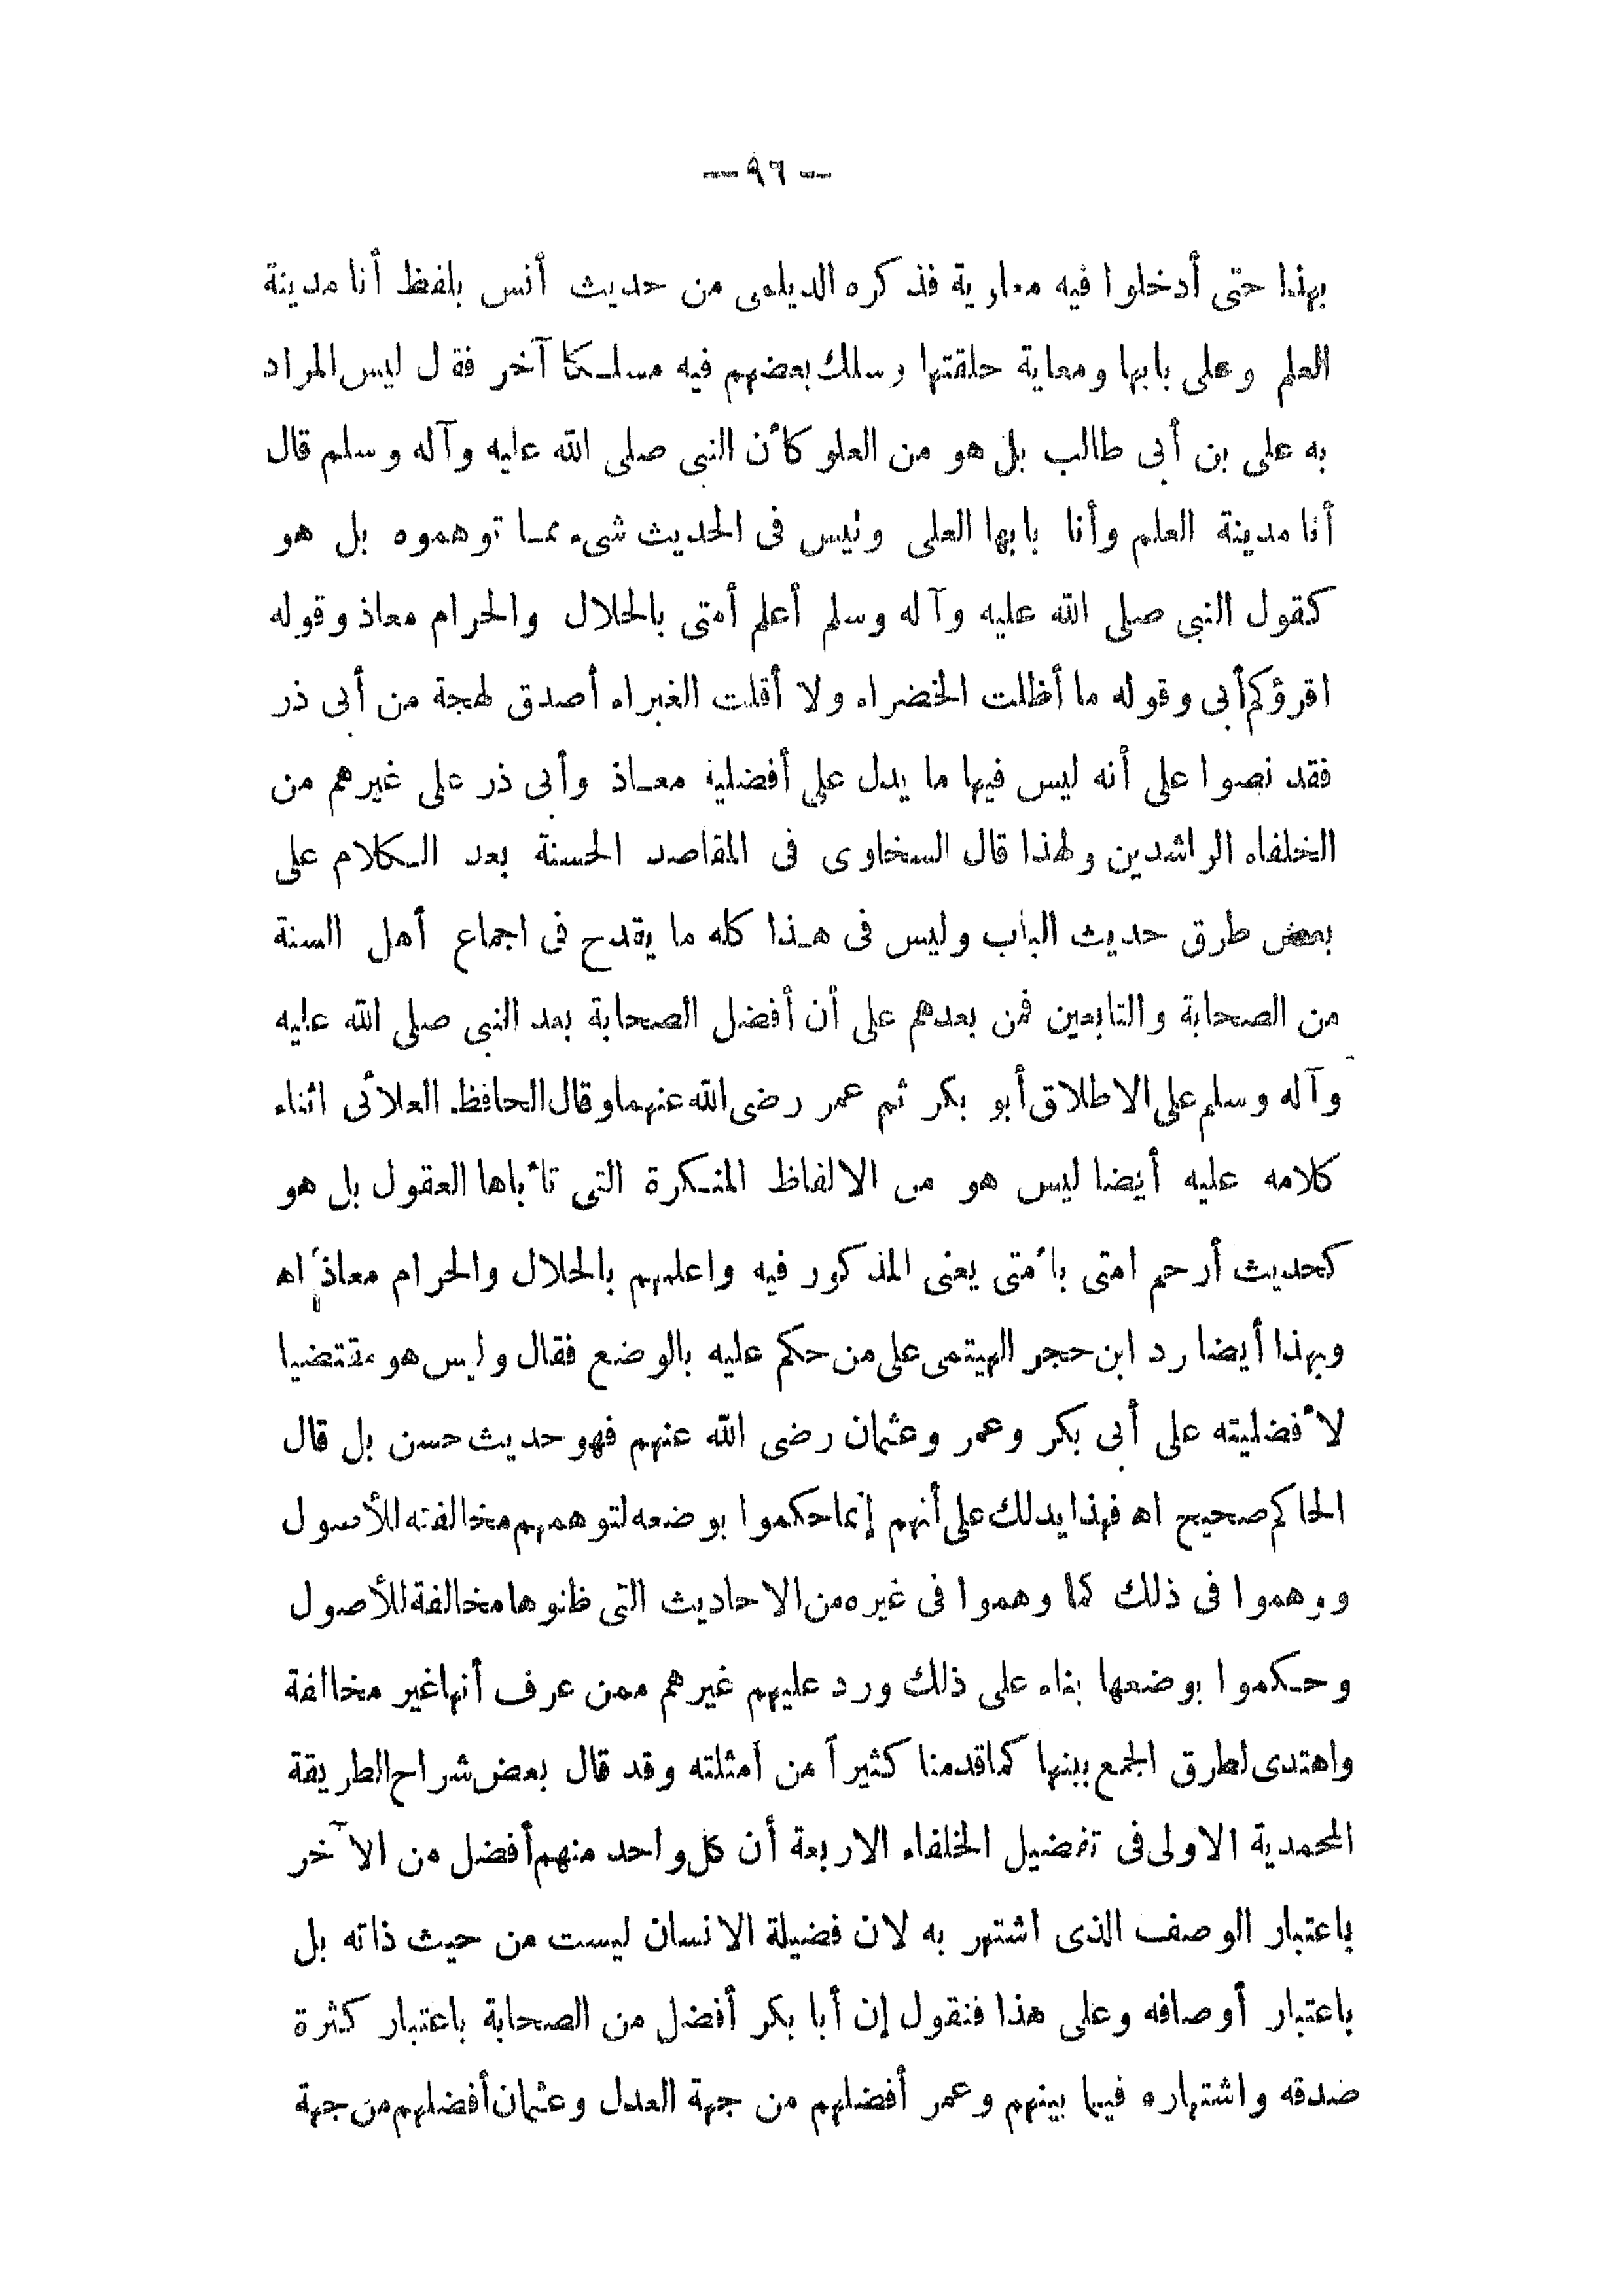 — ٩٦ —
بهذا حتى أدخلوا فيه معاوية فذكره الديلمى من حديث أنس بلفظ أنا مدينة
العلم وعلى بابها ومعاية حلقتها وسلك بعضهم فيه مسلكا آخر فقال ليس المراد
به على بن أبى طالب بل هو من العلو كأن النبى صلى الله عليه وآله وسلم قال
أنا مدينة العلم وأنا بابها العلى وليس فى الحديث شىء مما توهموه بل هو
كقول النبى صلى الله عليه وآله وسلم أعلم أمتى بالحلال والحرام معاذ وقوله
اقرؤكم أبى وقوله ما أظلت الخضراء ولا أقلت الغبراء أصدق لهجة من أبى ذر
فقد نصوا على أنه ليس فيها ما يدل على أفضلية معاذ وأبى ذر على غيرهم من
الخلفاء الراشدين ولهذا قال السخاوى فى المقاصد الحسنة بعد الكلام على
بعض طرق حديث الباب وليس فى هذا كله ما يقدح فى اجماع أهل السنة
من الصحابة والتابعين فمن بعدهم على أن أفضل الصحابة بعد النبى صلى الله عليه
وآله وسلم على الاطلاق أبو بكر ثم عمر رضى الله عنهما وقال الحافظ العلائى اثناء
كلامه عليه أيضا ليس هو من الالفاظ المنكرة التى تأباها العقول بل هو
كحديث أرحم امتى بأمتى يعنى المذكور فيه واعلمهم بالحلال والحرام معاذ اه
وبهذا أيضا رد ابن حجر الهيتمى على من حكم عليه بالوضع فقال وليس هو مقتضيا
لأفضليته على أبى بكر وعمر وعثمان رضى الله عنهم فهو حديث حسن بل قال
الحاكم صحيح اه فهذا يدلك على أنهم إنما حكموا بوضعه لتوهمهم مخالفته للأصول
ووهموا فى ذلك كما وهموا فى غيره من الاحاديث التى ظنوها مخالفة للأصول
وحكموا بوضعها بناء على ذلك ورد عليهم غيرهم ممن عرف أنها غير مخالفة
واهتدى لطرق الجمع بينها كما قدمنا كثيرآ من أمثلته وقد قال بعض شراح الطريقة
المحمدية الاولى فى تفضيل الخلفاء الاربعة أن كل واحد منهم أفضل من الآخر
باعتبار الوصف الذى اشتهر به لان فضيلة الانسان ليست من حيث ذاته بل
باعتبار أوصافه وعلى هذا فنقول إن أبا بكر أفضل من الصحابة باعتبار كثرة
صدقه واشتهاره فيما بينهم وعمر أفضلهم من جهة العدل وعثمان أفضلهم من جهة